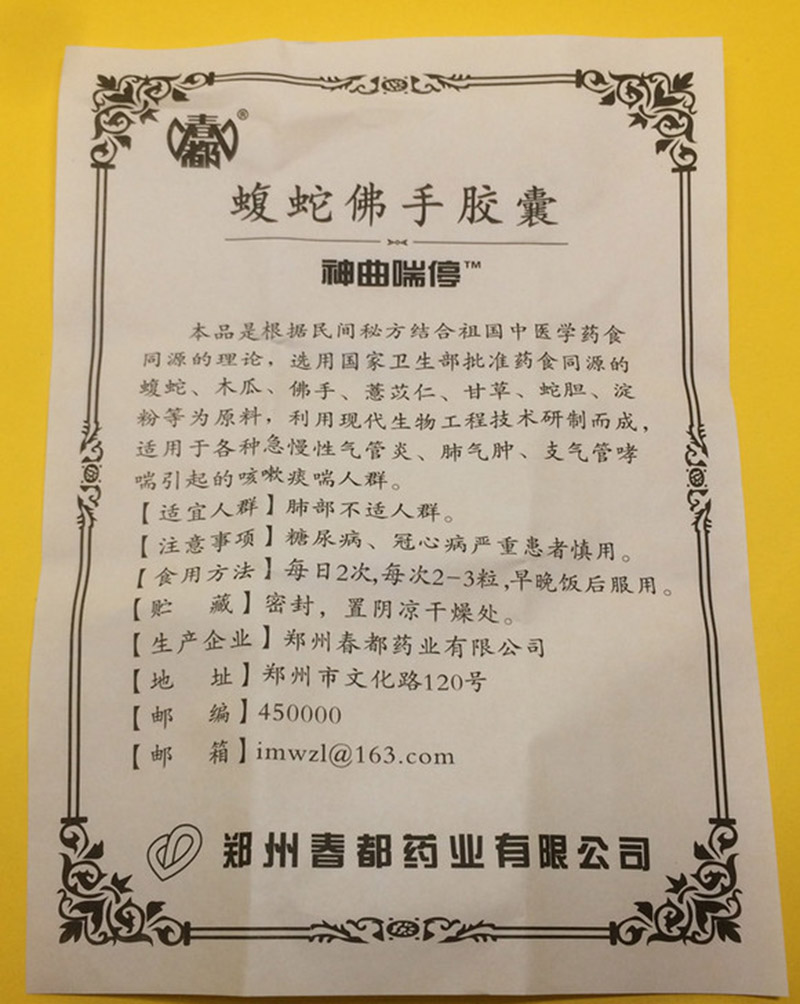 春都®
蝮蛇佛手胶囊
神曲喘停™
本品是根据民间秘方结合祖国中医学药食
同源的理论，选用国家卫生部批准药食同源的
蝮蛇、木瓜、佛手、薏苡仁、甘草、蛇胆、淀
粉等为原料，利用现代生物工程技术研制而成，
适用于各种急慢性气管炎、肺气肿、支气管哮
喘引起的咳嗽痰喘人群。
【适宜人群】肺部不适人群。
【注意事项】糖尿病、冠心病严重患者慎用。
【食用方法】每日2次,每次2-3粒,早晚饭后服用。
【贮 藏】密封，置阴凉干燥处。
【生产企业】郑州春都药业有限公司
【地 址】郑州市文化路120号
【邮 编】450000
【邮 箱】imwzl@163.com
郑州春都药业有限公司